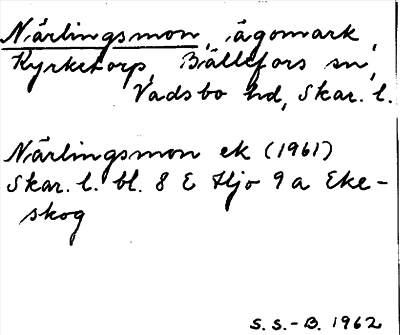 Närlingsmon, ägomark,
Kyrketorp, Bällefors sn,
Vadsbo hd, Skar. l.
Närlingsmon ek (1961)
Skar. l. bl. 8 E Hjo 9 a Eke-
skog
S. S.-B. 1962